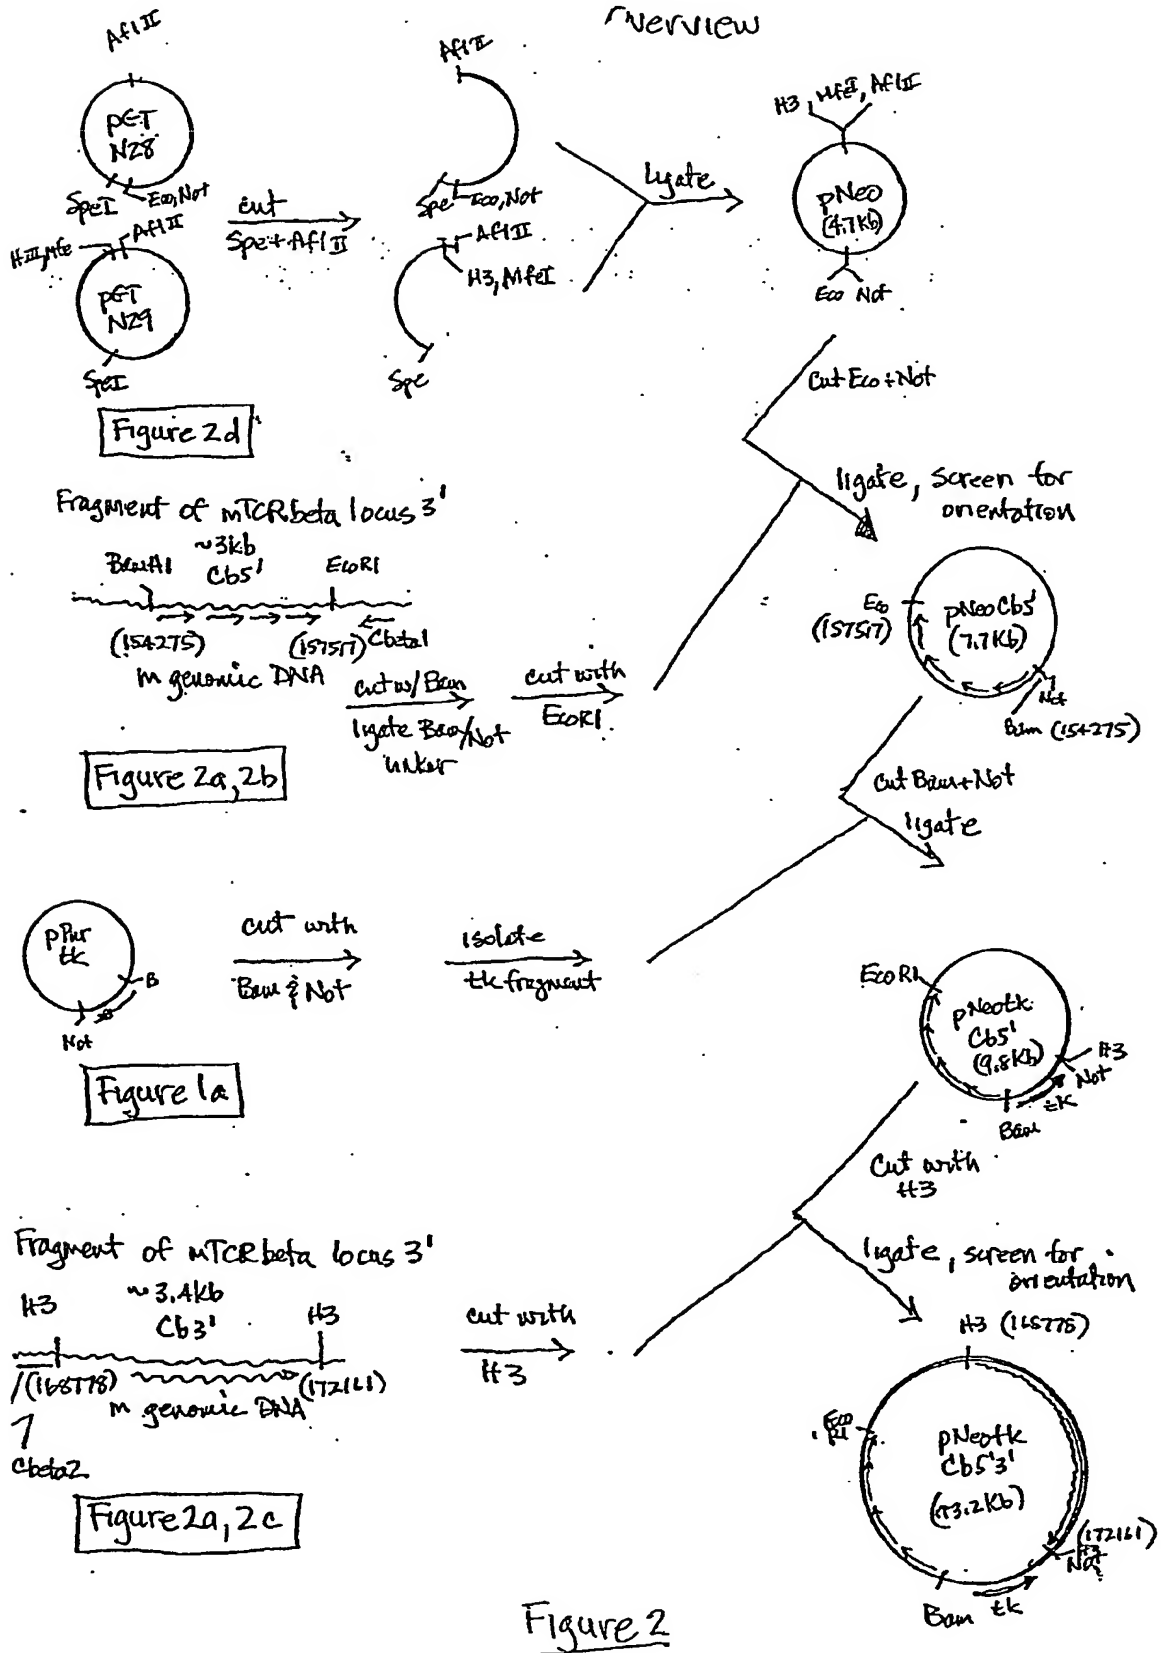 Overview
AflII
pET
N28
SpeI
Eco, Not
AflII
Spe
Eco, Not
cut
Spe+AflII
HIII, Mfe
AflII
pET
N29
SpeI
AflII
H3, MfeI
Spe
ligate
H3, MfeI, AflII
pNeo
(4.7Kb)
Eco Not
Figure 2d
cut Eco+Not
ligate, screen for
orientation
Fragment of mTCRbeta locus 3'
~3kb
BamH1 Cb5' EcoR1
(154275) (157517) Cbeta1
m genomic DNA
cut w/Bam
ligate Bam/Not
linker
cut with
EcoR1
Figure 2a, 2b
Eco
(157517)
pNeoCb5'
(7.7Kb)
Not
Bam (154275)
cut Bam+Not
ligate
pPur
tk
B
Not
cut with
Bam & Not
isolate
tk fragment
Figure 1a
EcoR1
pNeotk
Cb5'
(9.8Kb)
H3
Not
tk
Bam
cut with
H3
ligate, screen for
orientation
Fragment of mTCRbeta locus 3'
H3 ~3.4kb H3
Cb3'
(168778) (172161)
m genomic DNA
Cbeta2
cut with
H3
Figure 2a, 2c
H3 (168778)
Eco
R1
pNeotk
Cb5'3'
(13.2Kb)
(172161)
H3
Not
Bam tk
Figure 2